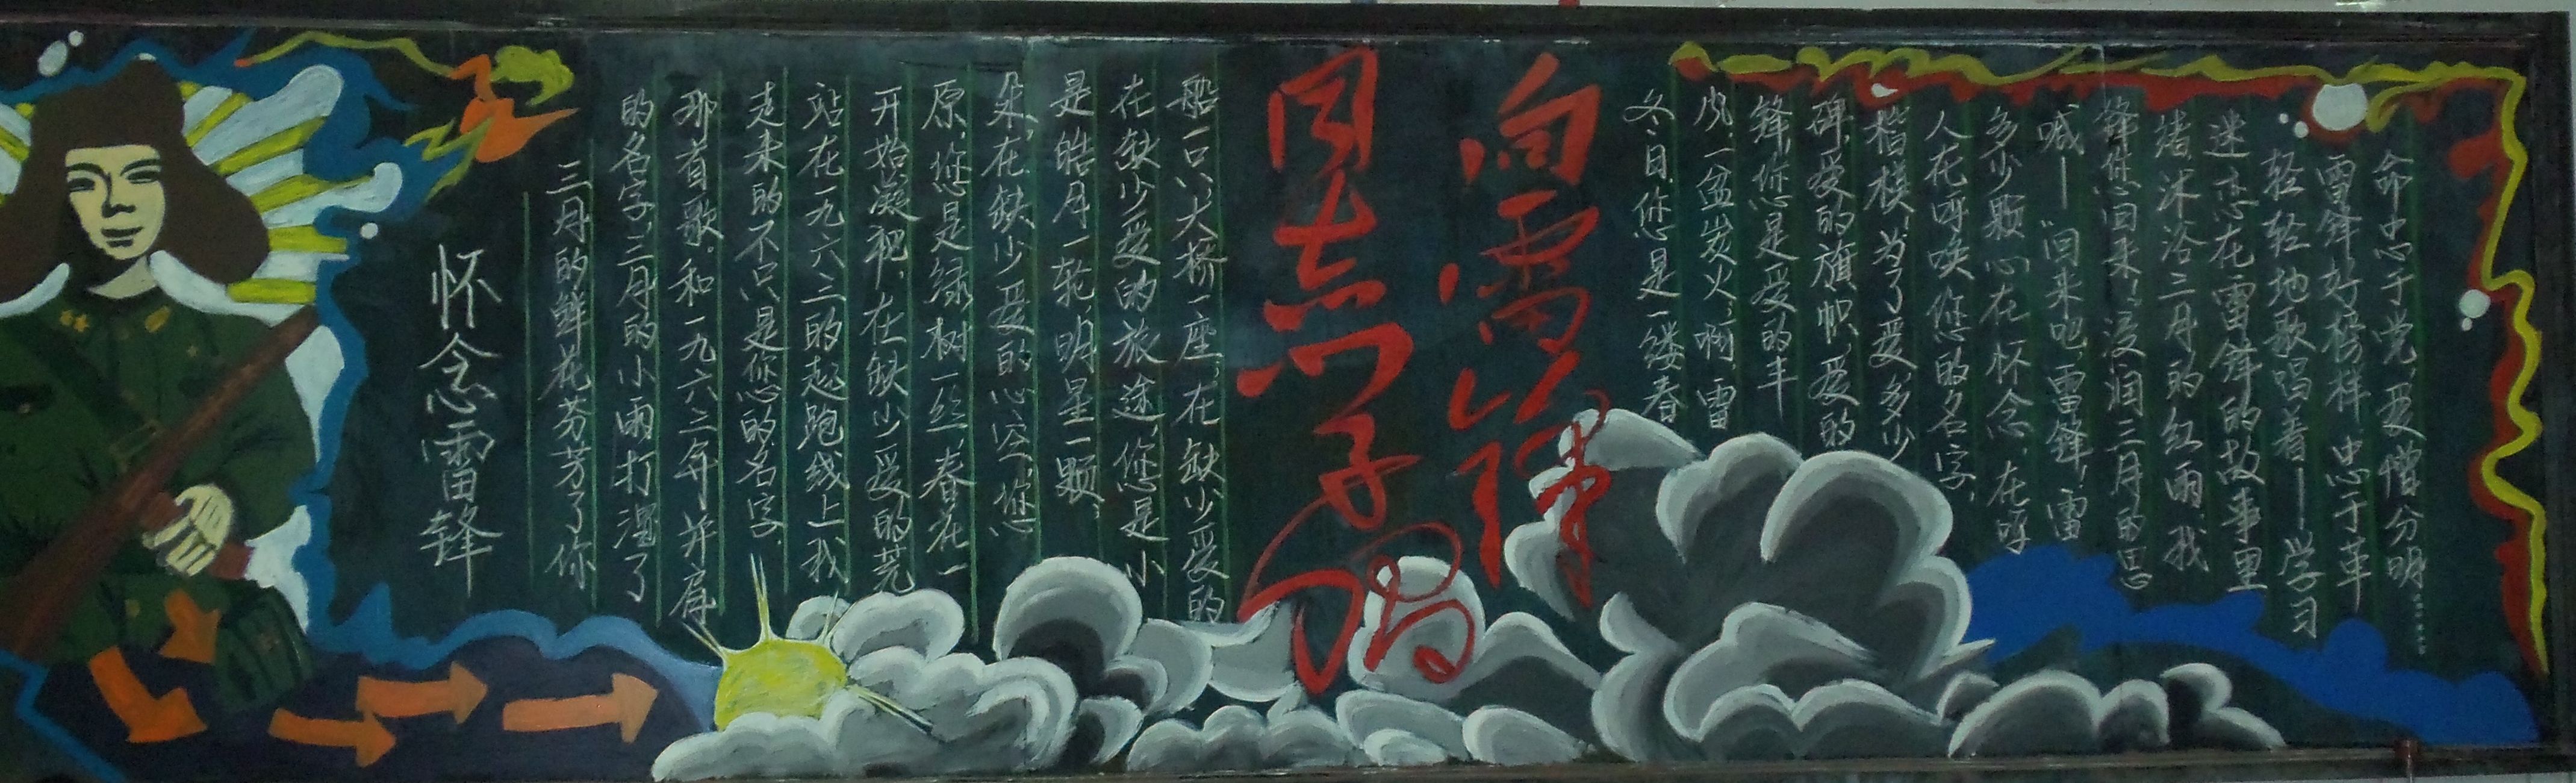 怀念雷锋
三月的鲜花芬芳了你
的名字,三月的小雨打湿了
那首歌,和一九六三年并肩
走来的不只是您的名字,
站在一九六二的起跑线上,我
开始凝视,在缺少爱的荒
原,您是绿树一丝,春花一
朵,在缺少爱的心空,您
是皓月一轮,明星一颗,
在缺少爱的旅途,您是小
船一只,大桥一座,在缺少爱的
向雷锋
同志学习
冬日,您是一缕春
风,一盆炭火,啊,雷
锋,您是爱的丰
碑,爱的旗帜,爱的
楷模,为了爱,多少
人在呼唤您的名字,
多少颗心在怀念,在呼
喊—“回来吧,雷锋,雷
锋您回来”,浸润三月的思
绪,沐浴三月的红雨,我
迷恋在雷锋的故事里
轻轻地歌唱着——学习
雷锋好榜样 忠于革
命忠于党,爱憎分明……